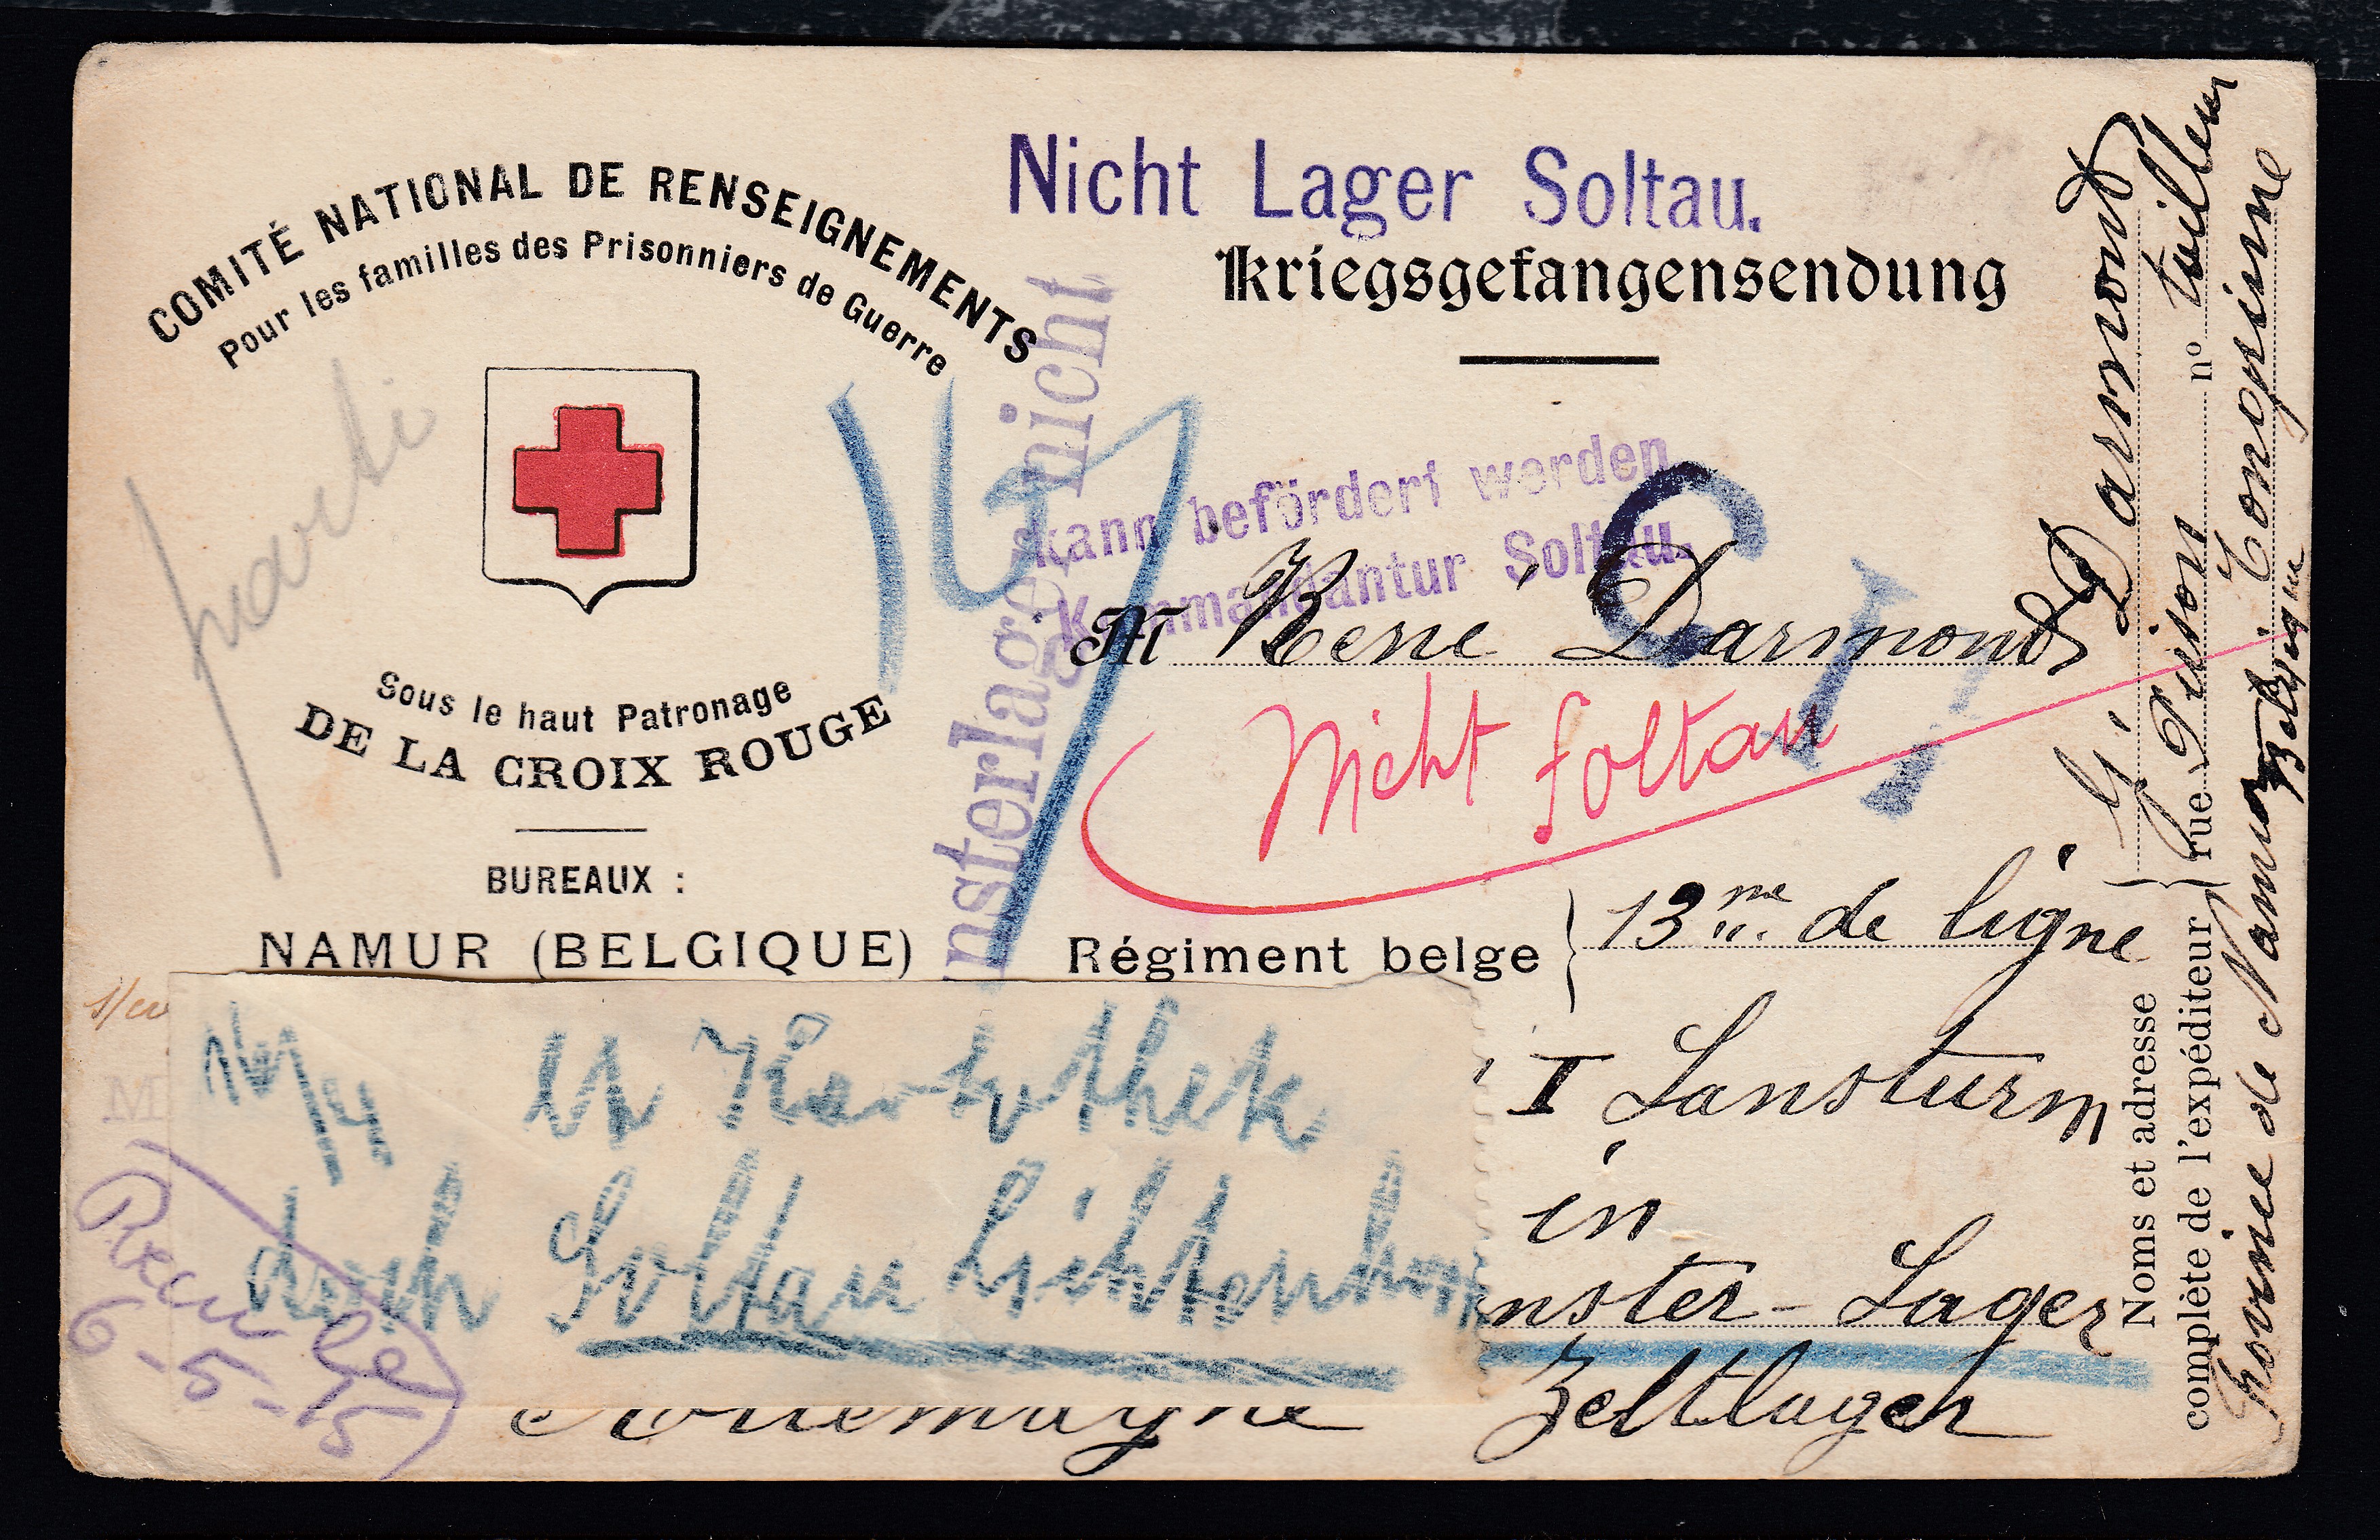 COMITÉ NATIONAL DE RENSEIGNEMENTS
Pour les familles des Prisonniers de Guerre
parti
Sous le haut Patronage
DE LA CROIX ROUGE
BUREAUX :
NAMUR (BELGIQUE)
Nicht Lager Soltau.
Kriegsgefangensendung
nsterlager nicht
kann befördert werden
Kommandantur Soltau.
M René Darmont
Nicht Soltau
Régiment belge } 13me de ligne
I Lansturm
in
nster-Lager
Zeltlager
Kartothek
Soltau
Reçu le
6-5-15
Noms et adresse
complète de l'expéditeur
G. Darmont
rue Pison no
Tongrinne
de Namur
Belgique